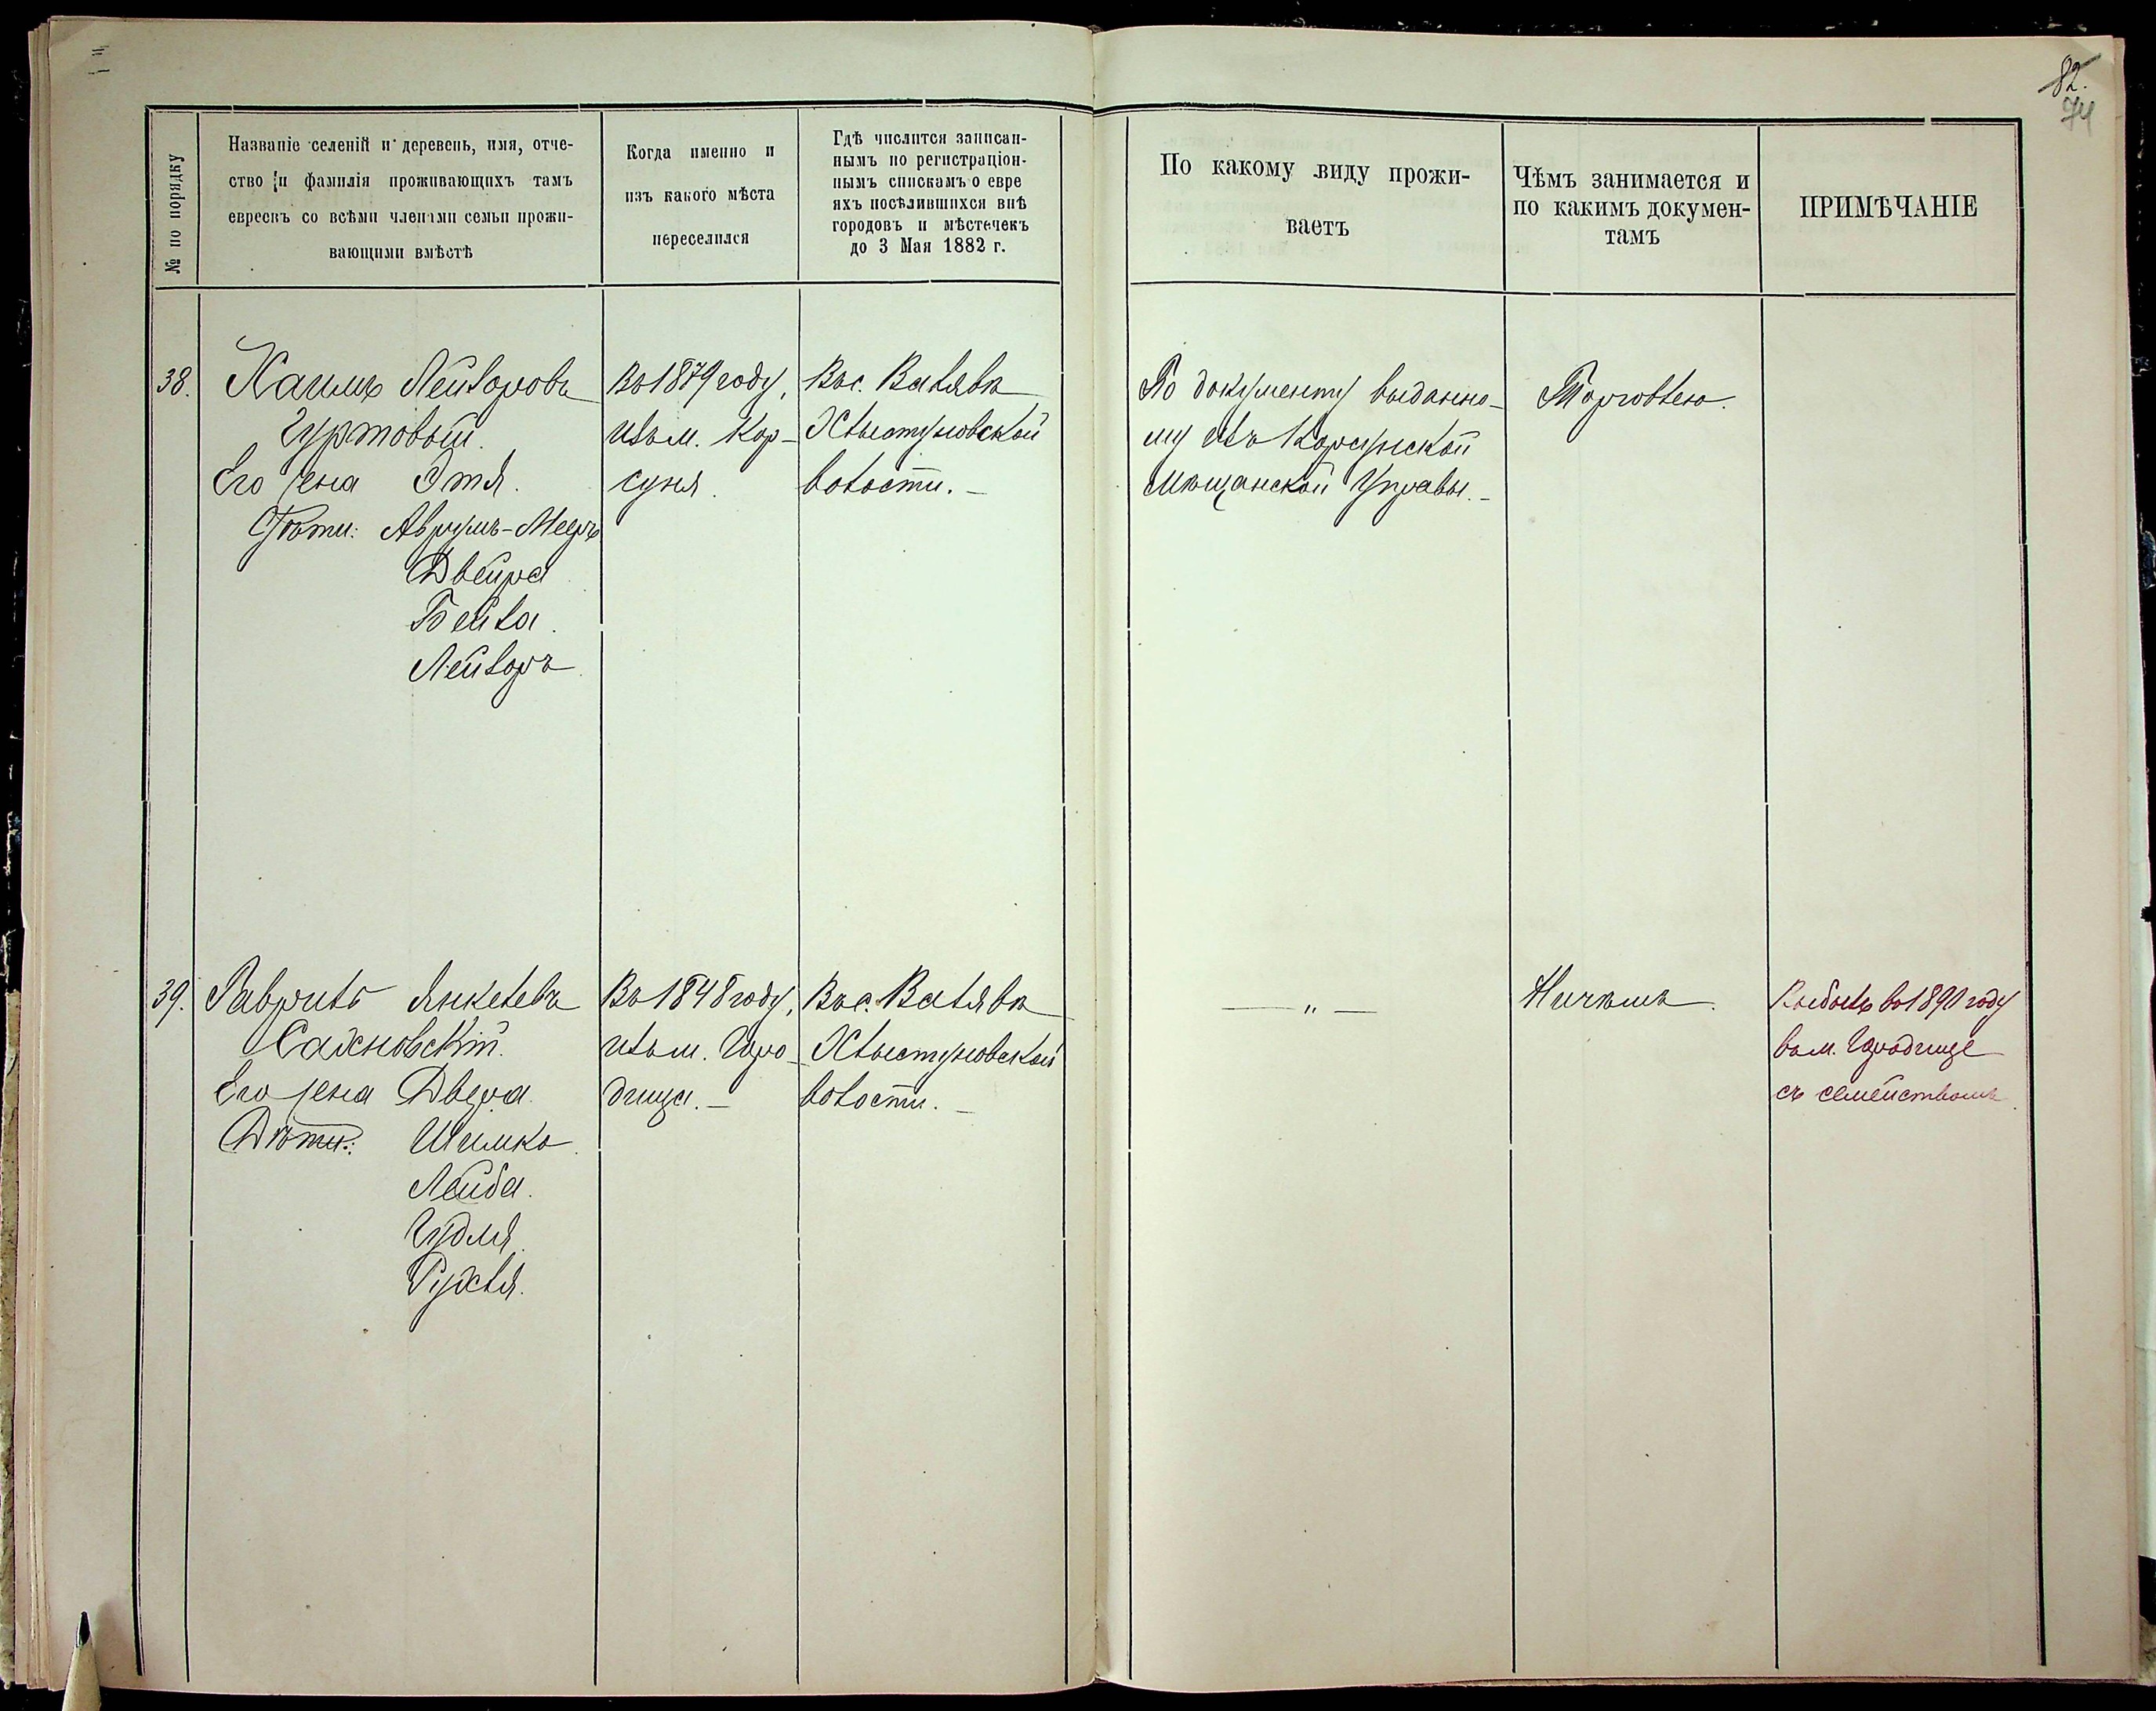 82.
74
№ по порядку
Названіе селеній и деревень, имя, отче-
ство и фамилія проживающихъ тамъ
евреевъ со всѣми членами семьи прожи-
вающими вмѣстѣ
Когда именно и
изъ какого мѣста
переселился
Гдѣ числится записан-
нымъ по регистраціон-
нымъ спискамъ о евре
яхъ посѣлившихся внѣ
городовъ и мѣстечекъ
до 3 Мая 1882 г.
По какому виду прожи-
ваетъ
Чѣмъ занимается и
по какимъ докумен-
тамъ
ПРИМѢЧАНІЕ
38.
Хаимъ Лейзоровъ
Гуртовый.
Его жена Этя.
Дѣти: Аврумъ-Мееръ
Двейра
Бейла.
Лейзоръ.
Въ 1879 году,
изъ м. Кор-
суня.
Въ с. Валявѣ
Хлыстуновской
волости. –
По документу выданно-
му изъ Корсунской
Мѣщанской Управы. –
Торговлею.
39.
Гаврило Янкелевъ
Сахновскій.
Его жена Двера.
Дѣти: Шимко.
Лейба.
Гудля.
Рухля.
Въ 1848 году,
изъ м. Горо-
дища. –
Въ с. Валявѣ
Хлыстуновской
волости. –
— " —
Ничѣмъ.
Выбылъ въ 1890 году
въ м. Городище
съ семействомъ.